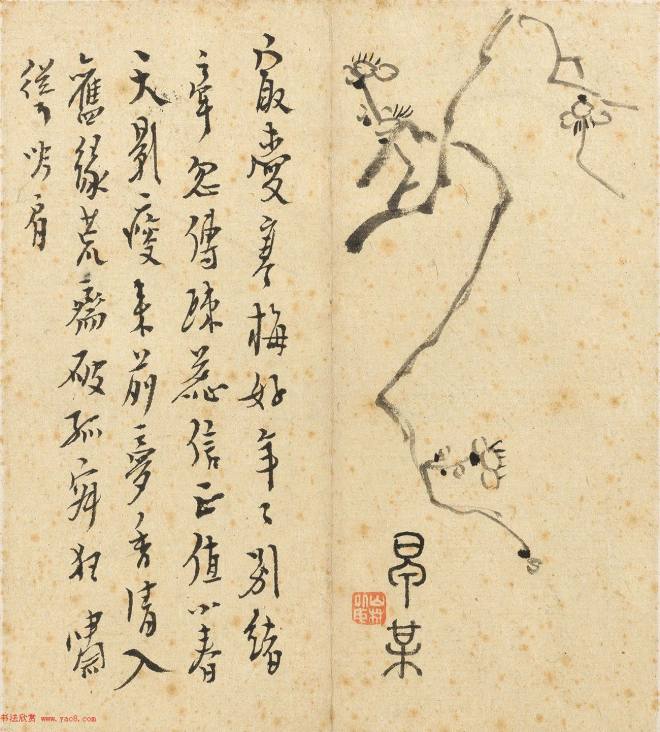 早某
最愛寒梅好年々別緒
牽忽傳疎蕊信正值小春
天影瘦來前夢香清入
舊緣荒齋破孤寂狂嘯
聳吟肩
书法欣赏 www.yac8.com